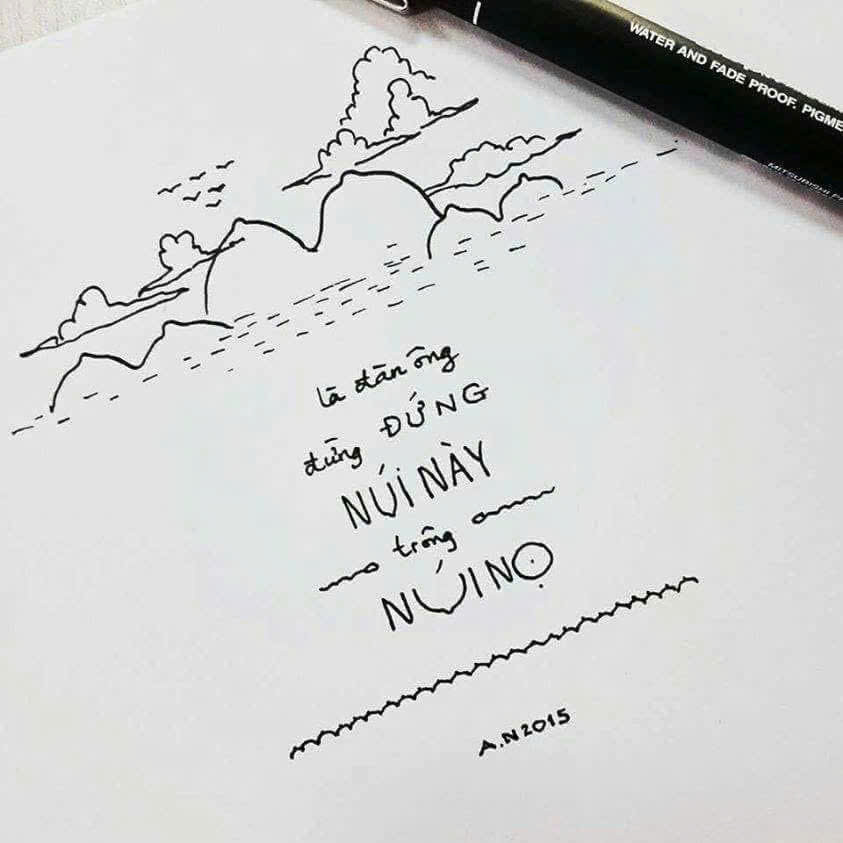 WATER AND FADE PROOF. PIGME
MITSUBISHI PE
là đàn ông
đừng ĐỨNG
NÚI NÀY
trông
NÚI NỌ
A.N 2015